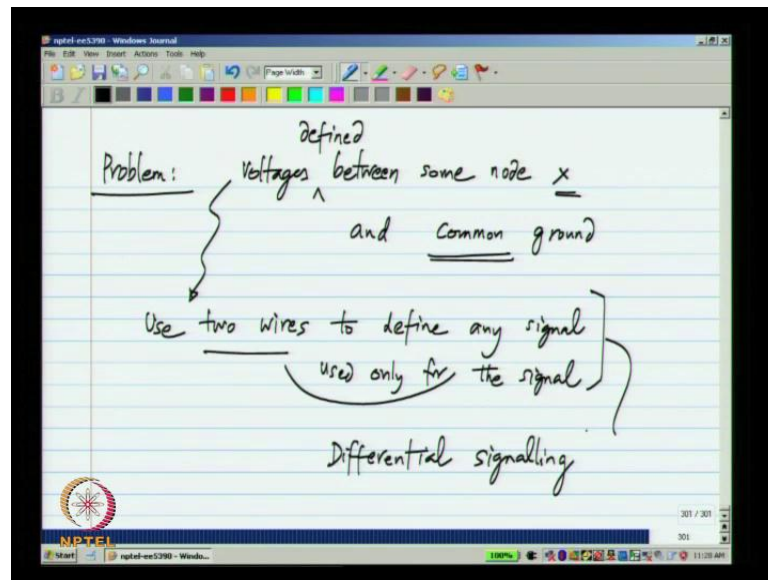 nptel-ee5390 - Windows Journal
File Edit View Insert Actions Tools Help
Page Width
B I
defined
Problem: Voltages ^ between some node x
and common ground
Use two wires to define any signal
used only for the signal
Differential signalling
301 / 301
301
NPTEL
Start nptel-ee5390 - Windo... 100% 11:20 AM